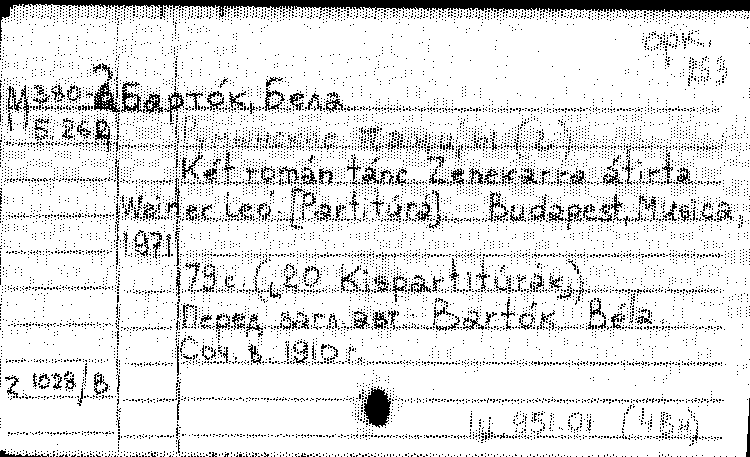 орк.
М 380-2
5.262
Барто́к, Бела
танцы (2)
Két román tánc Zenekarra átirta
Weiner Leó. [Partitúra]. Budapest, Musica,
1971
79 с. („20 Kispartitúrák")
Перед загл. авт. Bartók Béla
Соч. в 1910 г.
2 1028/В
Ш 951.01 (4Вн)